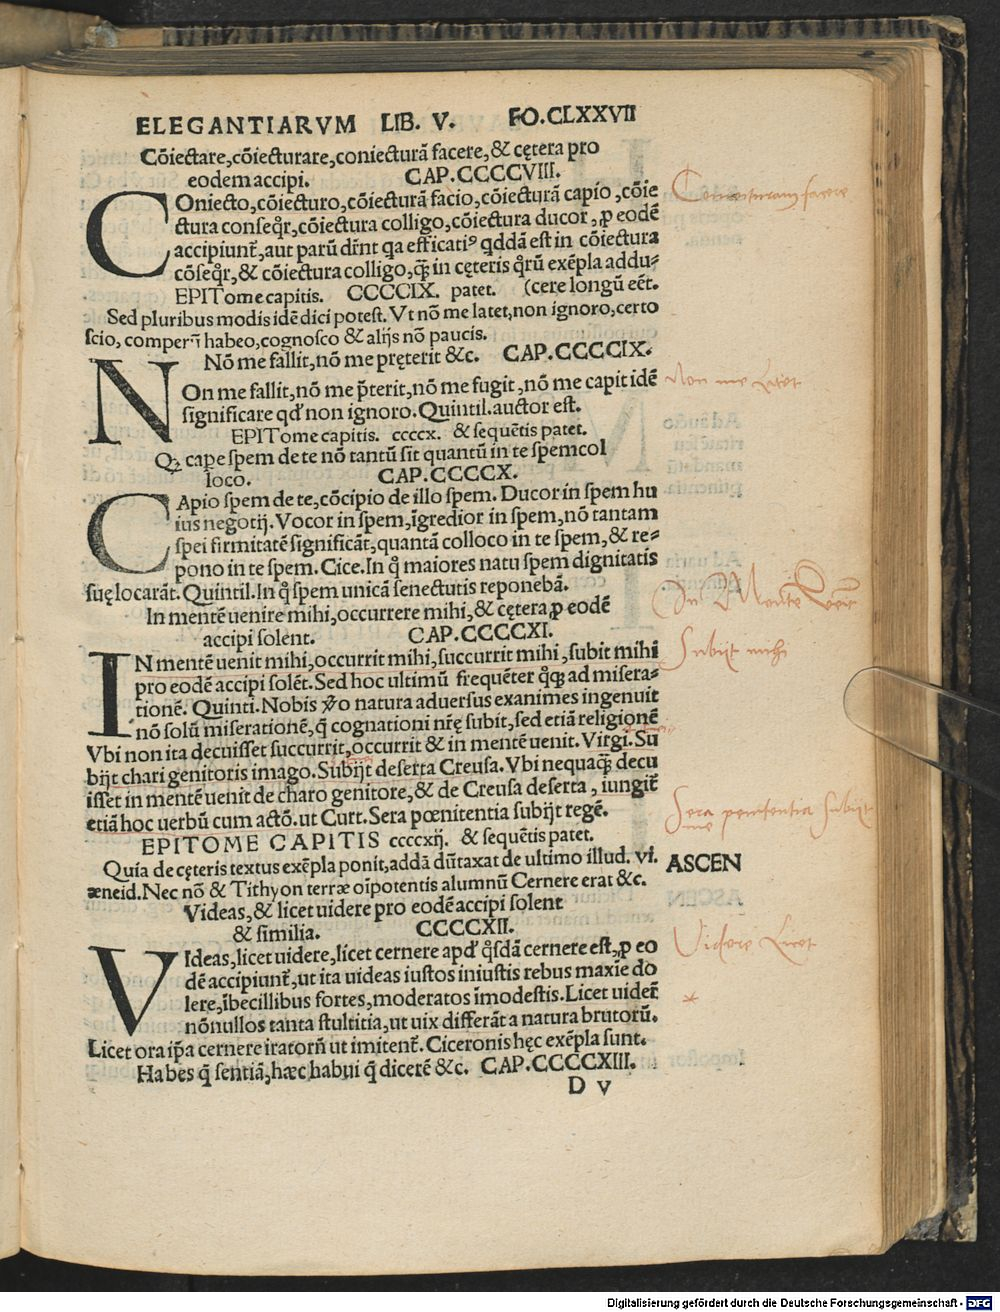 ELEGANTIARVM LIB. V. FO.CLXXVII
Cōiectare,cōiecturare,coniecturā facere,& cętera pro
eodem accipi. CAP.CCCCVIII.
COniecto,cōiecturo,cōiecturā facio,cōiecturā capio,cōie
ctura conseqr̃,cōiectura colligo,cōiectura ducor,ꝓ eodē
accipiunt̃,aut parū dr̃nt qa efficatiꝰ qddā est in cōiectura
cōseqr̃,& cōiectura colligo,qꝫ in cęteris qr̃ū exēpla addu⸗
EPITome capitis. CCCCIX. patet. (cere longū eēt.
Sed pluribus modis idē dici potest. Vt nō me latet,non ignoro,certo
scio, compertū habeo,cognosco & alijs nō paucis.
Nō me fallit,nō me pręterit &c. CAP.CCCCIX.
NOn me fallit,nō me p̄terit,nō me fugit,nō me capit idē
significare qđ non ignoro.Quintil.auctor est.
EPITome capitis. ccccx. & sequētis patet.
Qꝫ cape spem de te nō tantū sit quantū in te spem col
loco. CAP.CCCCX.
CApio spem de te,cōcipio de illo spem. Ducor in spem hu
ius negotij.Vocor in spem,īgredior in spem,nō tantam
spei firmitatē significāt,quantā colloco in te spem,& re⸗
pono in te spem. Cice.In q̄ maiores natu spem dignitatis
suę locarāt. Quintil.In q̄ spem unicā senectutis reponebā.
In mentē uenire mihi,occurrere mihi,& cętera ꝓ eodē
accipi solent. CAP.CCCCXI.
IN mentē uenit mihi,occurrit mihi,succurrit mihi,subit mihi
pro eodē accipi solēt.Sed hoc ultimū frequēter qqꝫ ad misera⸗
tionē. Quinti.Nobis ꝟo natura aduersus exanimes ingenuit
nō solū miserationē,q̄ cognationi nrę̄ subit,sed etiā religionē
Vbi non ita decuisset succurrit,occurrit & in mentē uenit. Virgi.Su
bijt chari genitoris imago.Subijt deserta Creusa.Vbi nequaqꝫ decu
isset in mentē uenit de charo genitore,& de Creusa deserta, iungit̃
etiā hoc uerbū cum actō.ut Curt.Sera pœnitentia subijt regē.
EPITOME CAPITIS ccccxij. & sequētis patet.
Quia de cęteris textus exēpla ponit,addā dūtaxat de ultimo illud. vi. ASCEN
æneid.Nec nō & Tithyon terræ oīpotentis alumnū Cernere erat &c.
Videas,& licet uidere pro eodē accipi solent
& similia. CCCCXII.
VIdeas,licet uidere,licet cernere apđ qsdā cernere est,ꝓ eo
dē accipiunt̃,ut ita uideas iustos iniustis rebus maxīe do
lere,ībecillibus fortes,moderatos īmodestis.Licet uider̃
nōnullos tanta stultitia,ut uix differāt a natura brutorū.
Licet ora ip̄a cernere iratorū ut imitent̃. Ciceronis hęc exēpla sunt.
Habes q̄ sentiā,hæc habui q̄ dicerē &c. CAP.CCCCXIII.
D v
Coniecturam facere
Non me Latet
In Mentē Venit
Subijt michi
Sera penitentia subijt
me
Videre Licet
*
Digitalisierung gefördert durch die Deutsche Forschungsgemeinschaft - DFG